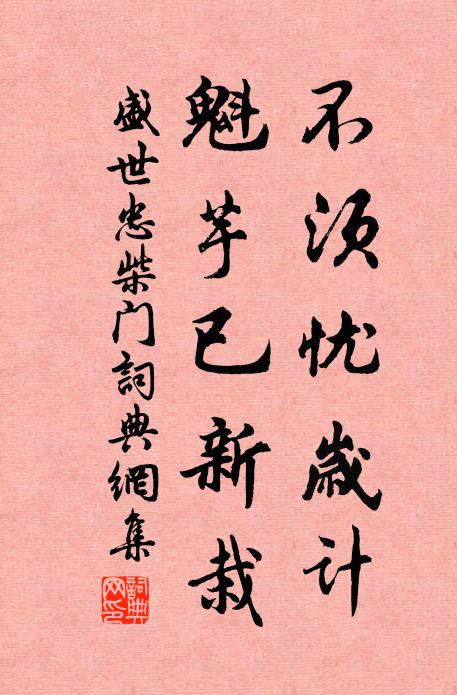 不须忧歲计
魁芋已新栽
盛世忠柴门詞典網集
詞典网印